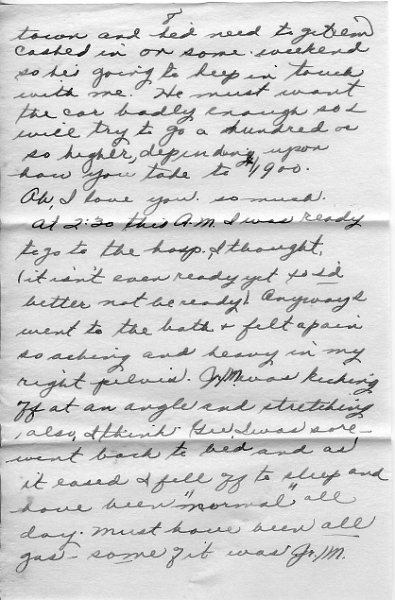 town and he'd need to get 'em
cashed in on some weekend
so he's going to keep in touch
with me. He must want
the car badly enough so I
will try to go a hundred or
so higher, depending upon
how you take to $1900.
Oh, I love you so much.
At 2:30 this A.M. I was ready
to go to the hosp. I thought,
(it isn't even ready yet & so I'd
better not be ready). Anyway I
went to the bath & felt again
so aching and heavy in my
right pelvis. Jr/M was kicking
off at an angle and stretching
, also, I think. Gee, I was sore –
went back to bed and as
it eased I fell off to sleep and
have been "normal" all
day. Must have been all
gas – some of it was Jr/M.